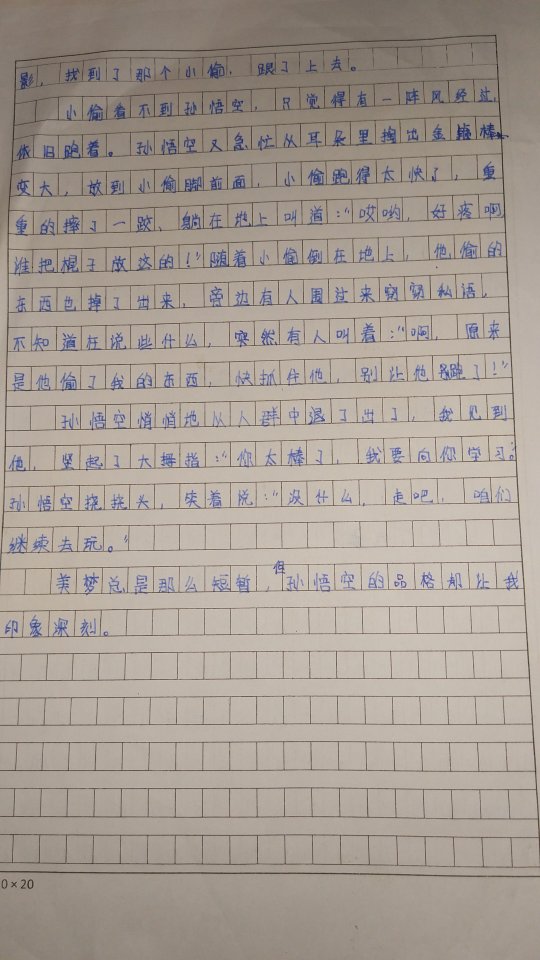 影，找到了那个小偷，跟了上去。
小偷看不到孙悟空，只觉得有一阵风经过，
依旧跑着。孙悟空又急忙从耳朵里掏出金箍棒，
变大，放到小偷脚前面，小偷跑得太快了，重
重的摔了一跤、躺在地上叫道：“哎哟，好疼啊
谁把棍子放这的！”随着小偷倒在地上，他偷的
东西也掉了出来，旁边有人围过来窃窃私语，
不知道在说些什么，突然有人叫着：“啊，原来
是他偷了我的东西，快抓住他，别让他跑了！”
孙悟空悄悄地从人群中退了出了，我见到
他，竖起了大拇指：“你太棒了，我要向你学习。”
孙悟空挠挠头，笑着说：“没什么，走吧，咱们
继续去玩。”
美梦总是那么短暂，但孙悟空的品格却让我
印象深刻。
0×20